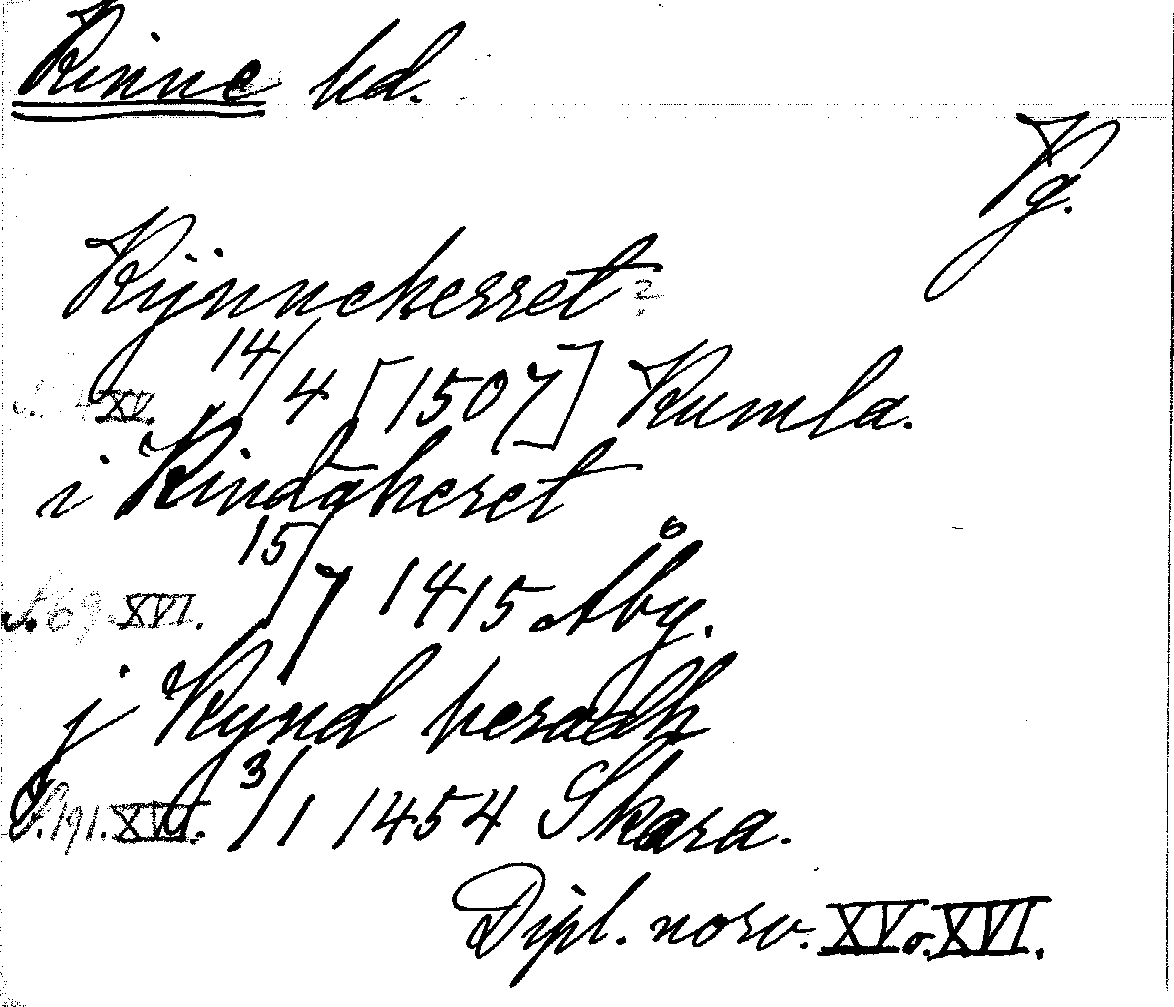 Kinne hd.
Vg.
Kynneherret?
XV. 14/4 [1507] Kumla.
i Kindaheret
s. 69. XVI. 15/7 1415 Åby.
j Kynd heradh
S. 191. XVI. 3/1 1454 Skara.
Dipl. norv. XV o. XVI.